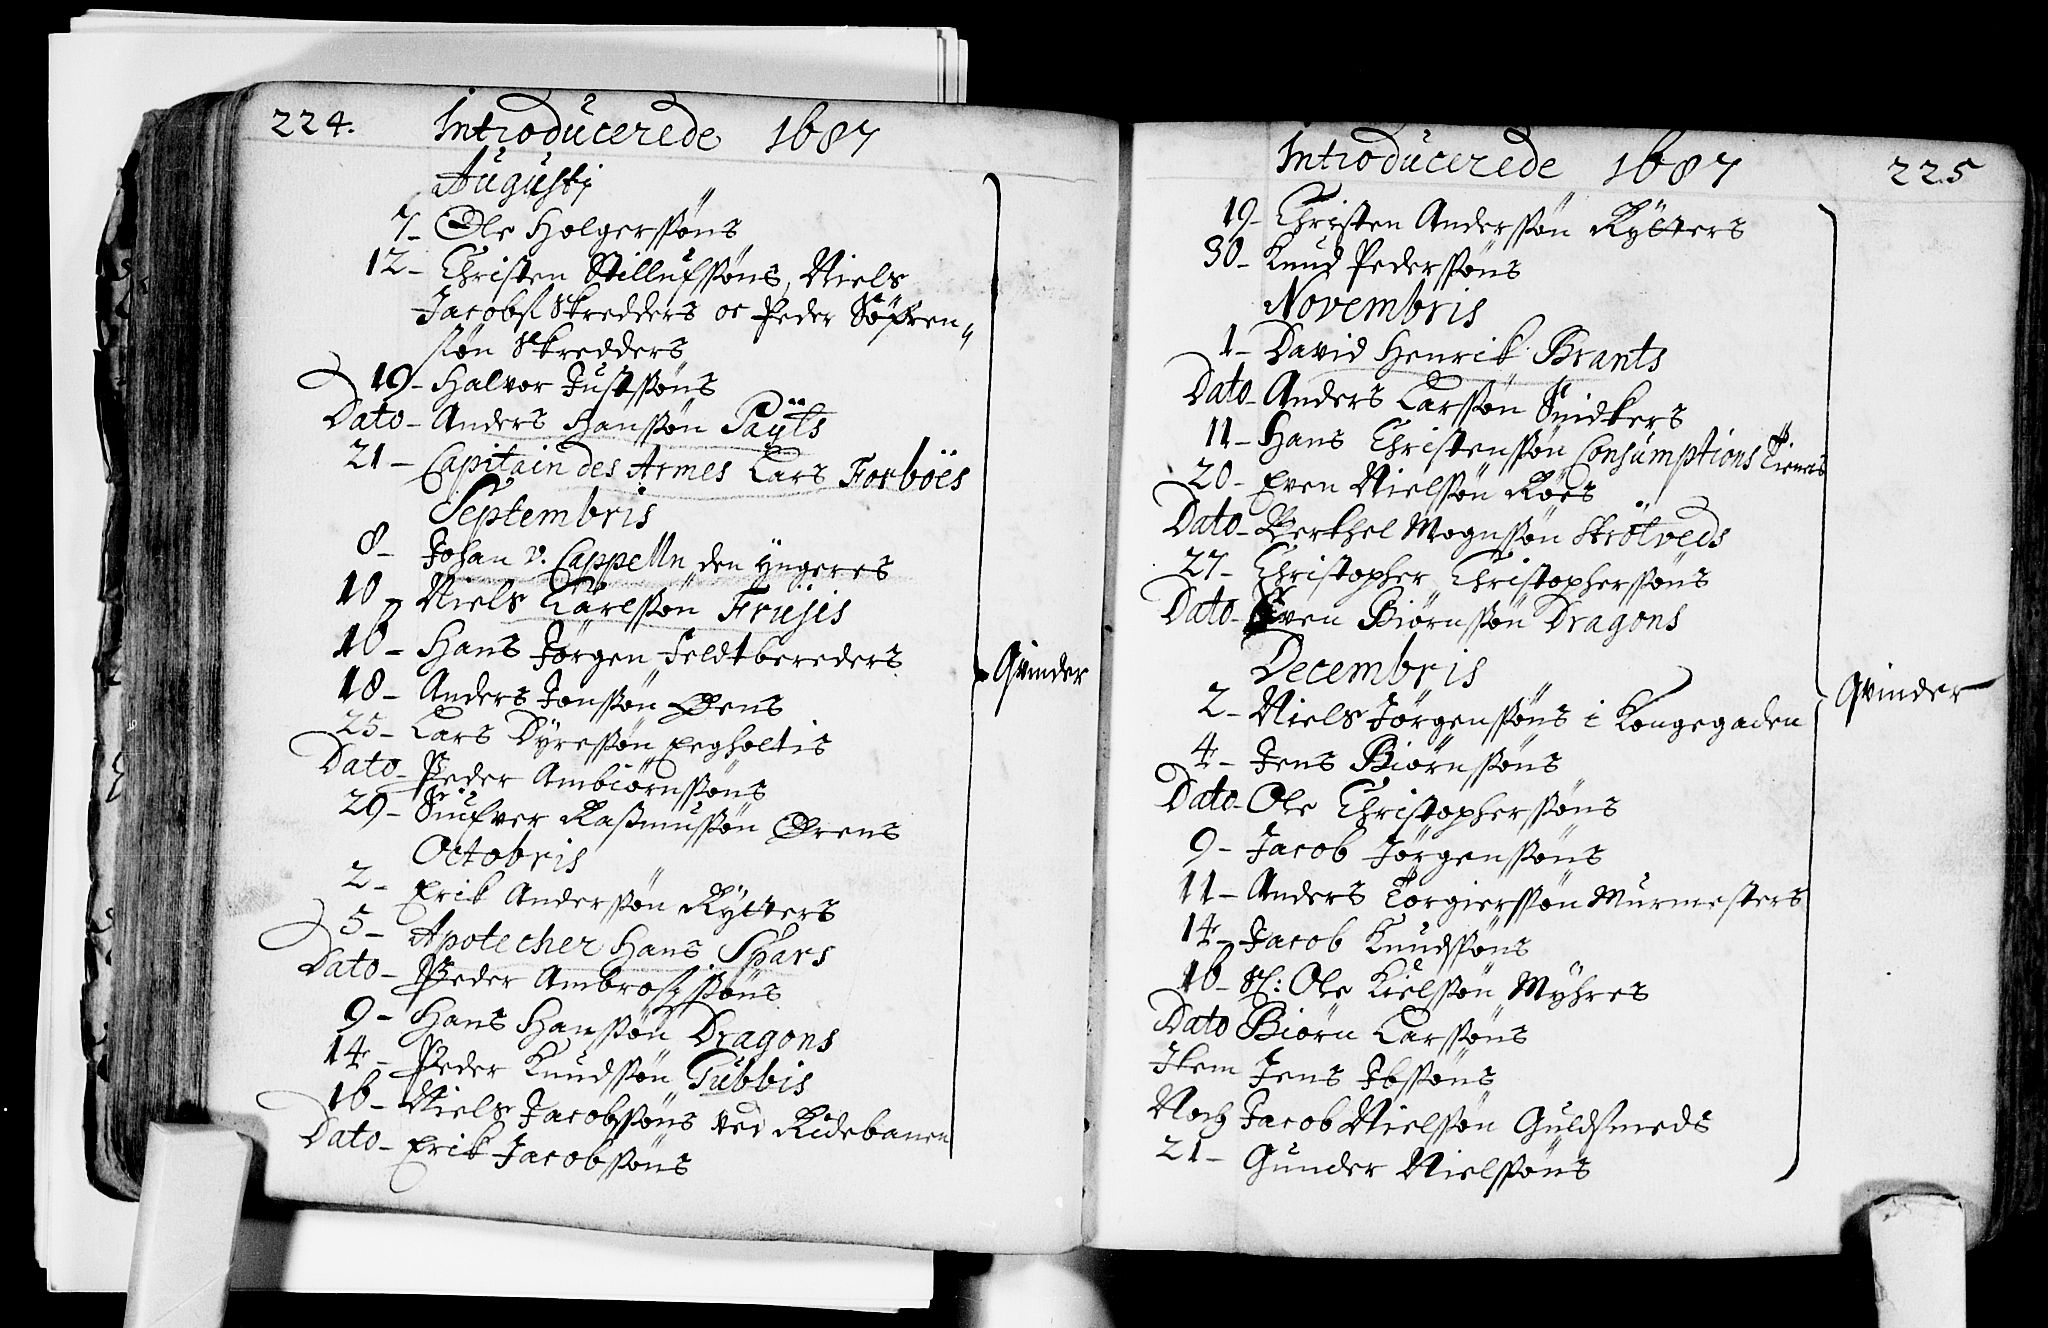 224. Introducerede 1687
Augustj
7- Ole Holgerssøns
12- Christen Stillufssøns, Niels
Jacobs. Skredders oc Peder Søfren-
søn Skredders
19- Halvor Justssøns
Dato- Anders Hanssøn Paÿts
21- Capitain des Armes Lars Forböes
Septembris
8- Johan v. Cappelln den yngeres
10- Niels Carlssøn Frusis
16- Hans Jørgen Feldtbereders
18- Anders Jonssøn Øens
25- Lars Dyressøn Eegholtis
Dato- Peder Ambiørnssøns
29- Siufver Rasmussøn Ørens
Octobris
2- Erik Anderssøn Rytters
5- Apotecher Hans Spars
Dato- Peder Ambrosjssøns
9- Hans Hanssøn Dragons
14- Peder Knudssøn Tubbis
16- Niels Jacobssøns ved Ridebanen
Dato- Erik Jacobssøns
Qvinder
Introducerede 1687 225
19- Christen Anderssøn Rytters
30- Knud Pederssøns
Novembris
1- David Henrik Brants
Dato- Anders Larssøn Snidkers
11- Hans Christenssøn Consumptions Tieners
20- Even Nielssøn Røes
Dato- Berthel Mognssøn Skrötveds
27- Christopher Christopherssøns
Dato- Even Biørnssøn Dragons
Decembris
2- Niels Jørgenssøns i Kongegaden
4- Jens Biørnssøns
Dato- Ole Christopherssøns
9- Jacob Jørgenssøns
11- Anders Torgierssøn Murmesters
14- Jacob Knudssøns
16- Sl: Ole Kielssøn Myhres
Dato Biørn Larssøns
Item Jens Ibssøns
Noch Jacob Nielssøn Guldsmeds
21- Gunder Nielssøns
Qvinder